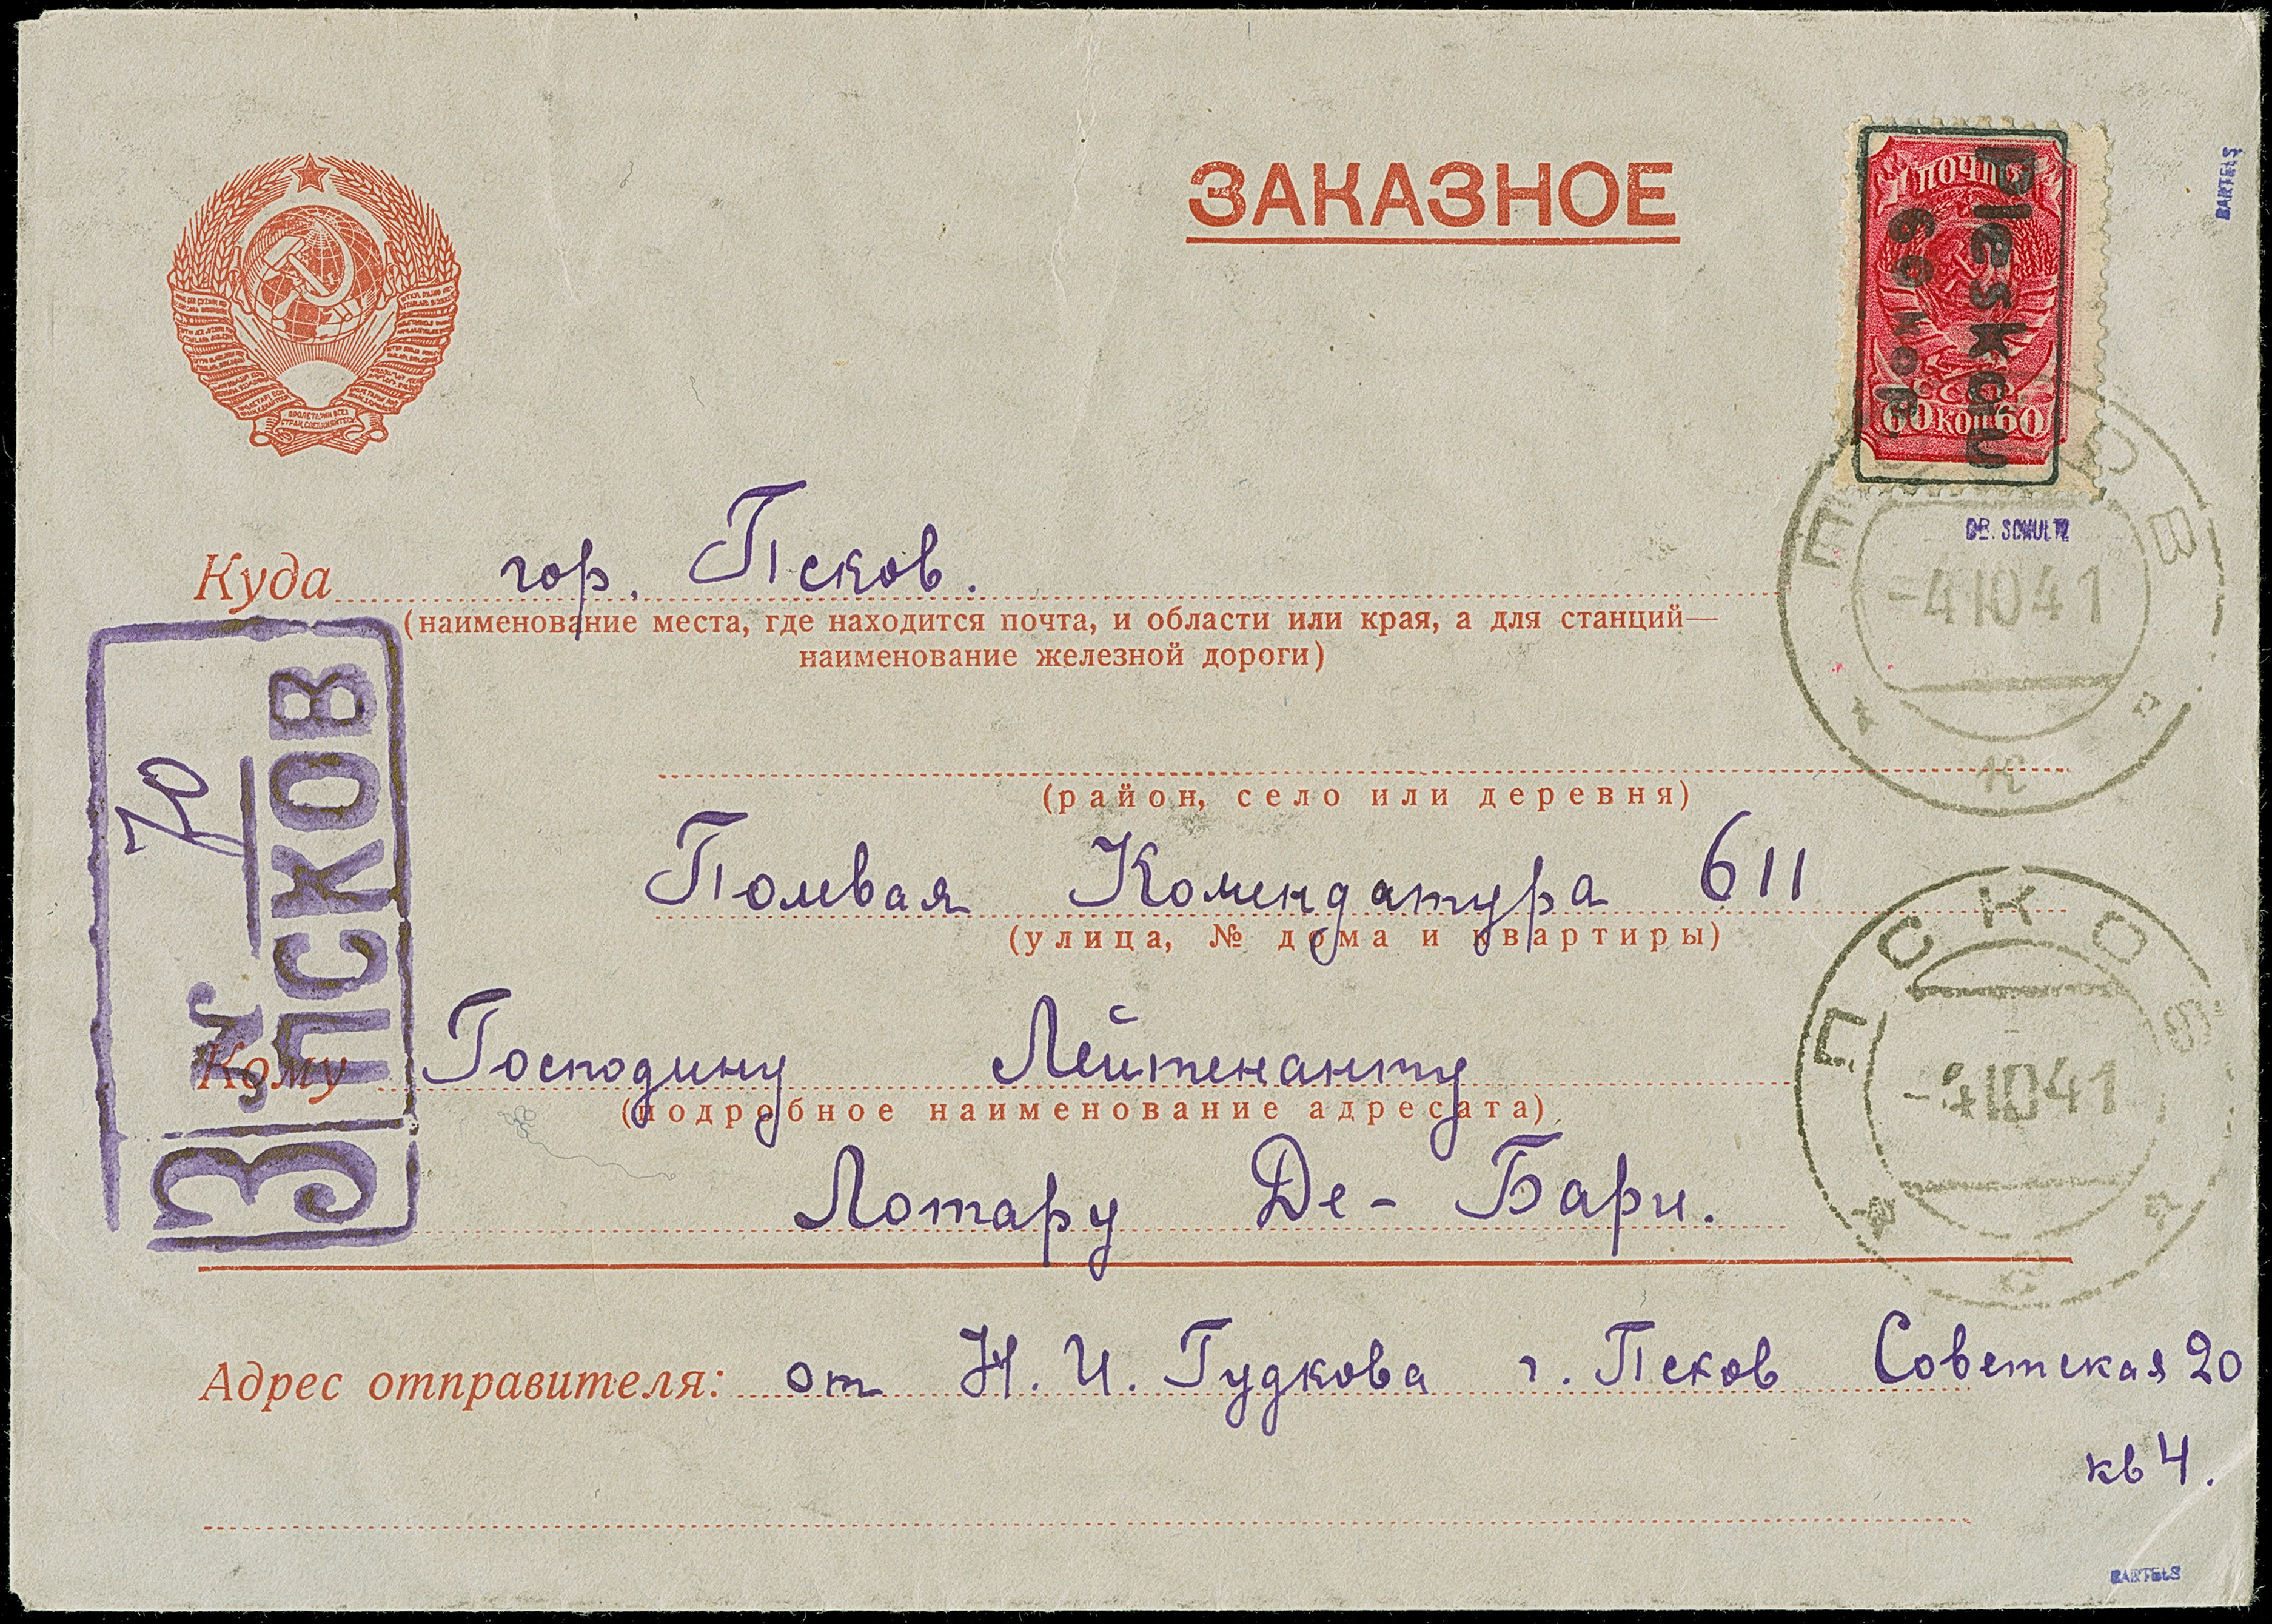 ЗАКАЗНОЕ
ПОЧТА
СССР
60 КОП 60
Pleskau
60 коп
BARTELS
ПРОЛЕТАРИИ ВСЕХ
СТРАН, СОЕДИНЯЙТЕСЬ!
Куда гор. Псков.
(наименование места, где находится почта, и области или края, а для станций—
наименование железной дороги)
ПСКОВ
DR. SCHULTZ
-4 10 41
(район, село или деревня)
Полвая Комендатура 611
(улица, № дома и квартиры)
З ПСКОВ
№ 70
ПСКОВ
-4 10 41
Кому Господину Лейтенанту
(подробное наименование адресата)
Лотару Де-Бари.
Адрес отправителя: от Н. И. Гудкова г. Псков Советская 20
кв 4.
BARTELS